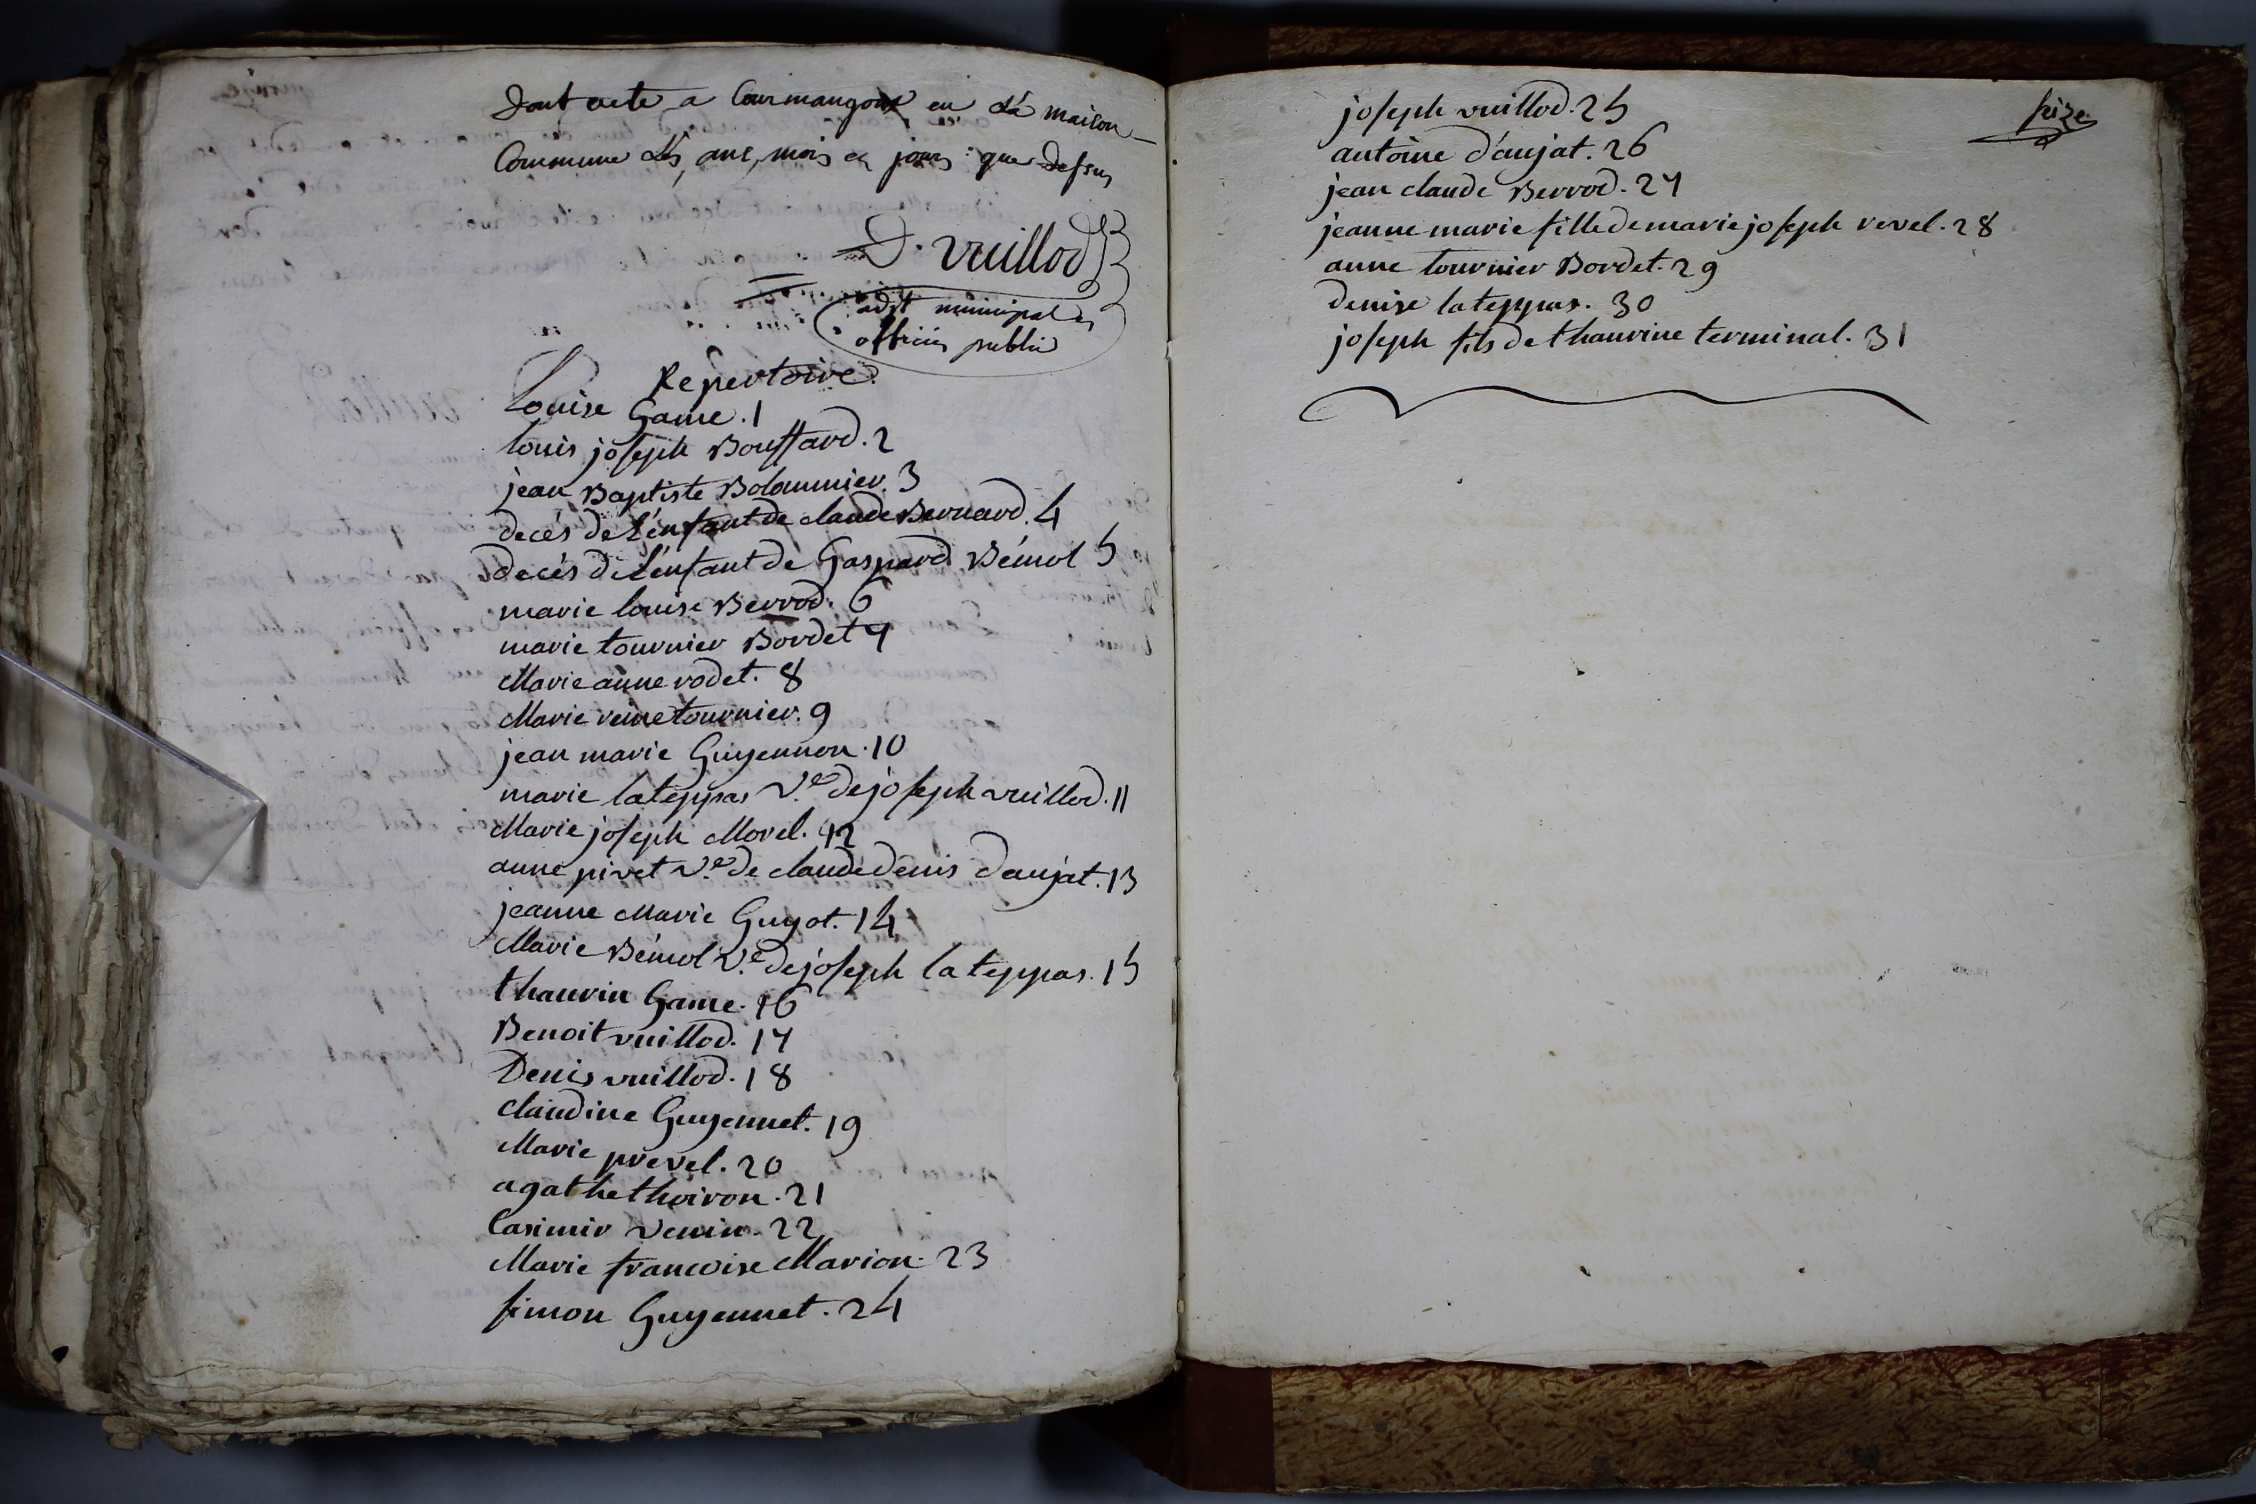 Dont acte a Courmangoux en la maison
Commune les, ans, mois et jours que dessus
D. vuillod
adjt municipal et
officier public
Repertoire.
Louise Game. 1
louis joseph Bouffard. 2
jean Baptiste Bolommier. 3
decés de l'énfant de claude Bernard. 4
decés de l'énfant de Gaspard Bémol 5
marie louise Berrod. 6
marie tournier Bordet 7
Marie anne rodet. 8
Marie reine tournier. 9
jean marie Guyennon. 10
marie lateppas v.e de joseph vuillod. 11
Marie joseph Morel. 12
anne pivet v.e de claude denis daujat. 13
jeanne Marie Guyot. 14
Marie Bémol v.e de joseph lateppas. 15
thaurin Game. 16
Benoit vuillod. 17
Denis vuillod. 18
claudine Guyennet. 19
Marie prevel. 20
agathe thoiron. 21
Casimir venin. 22
Marie francoise Marion. 23
simon Guyennet. 24
joseph vuillod. 25
antoine d'aujat. 26
jean claude Berrod. 27
jeanne marie fille de marie joseph revel. 28
anne tournier Bordet. 29
denise lateppas. 30
joseph fils de thaurine terminal. 31
seize